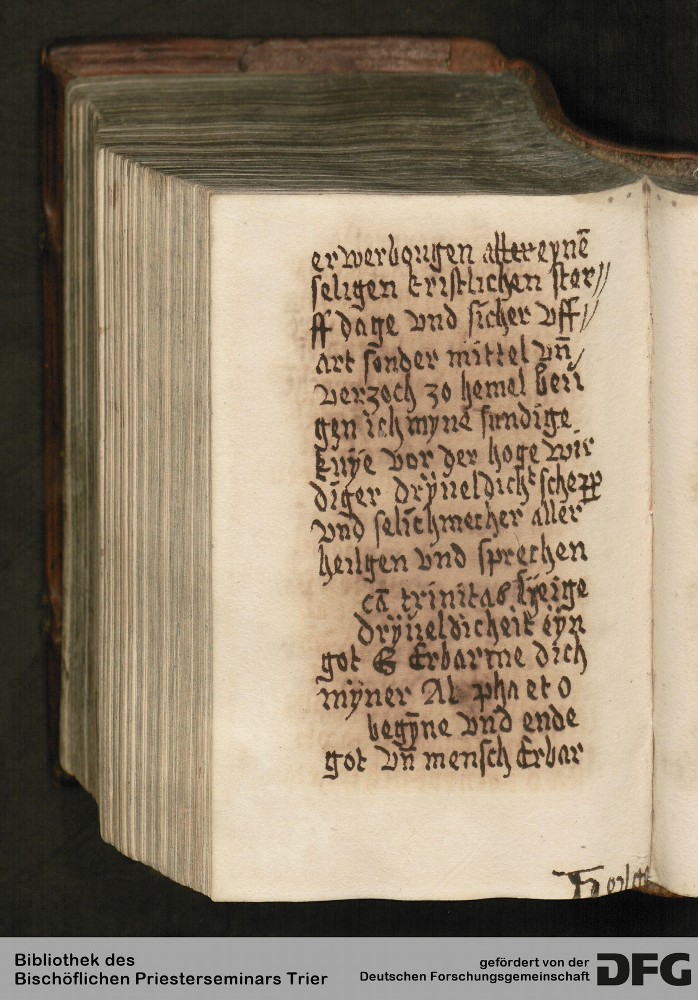 erwerbongen aller eynē
seligen kristlichen ster//
ff dage vnd sicher vff//
art sonder mittel vn̄/
verzoch zo hemel beu
gen ich myne sundige
knÿe vor der hoge wir
diger drÿueldicht schepp
vnd selichmecher aller
heilgen vnd sprechen
cā trinitas
drÿueldicheit eyn
got Erbarme dich
mÿner Al pha et o
begÿne vnd ende
got vn̄ mensch Erbar
Bibliothek des
Bischöflichen Priesterseminars Trier
gefördert von der
Deutschen Forschungsgemeinschaft
DFG